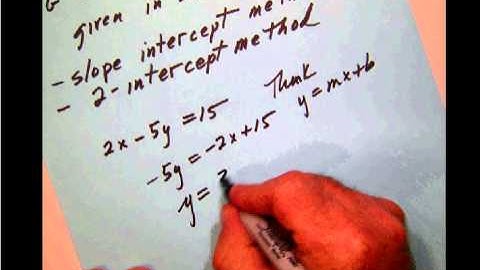 G
given in
- slope intercept
- 2-intercept method
2x - 5y = 15
Think
y = mx + b
-5y = -2x + 15
y =